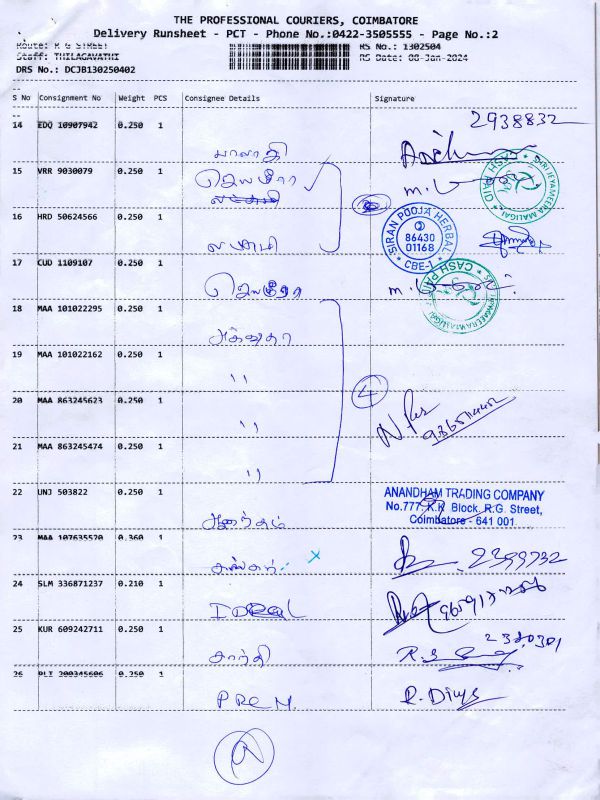 THE PROFESSIONAL COURIERS, COIMBATORE
Delivery Runsheet - PCT - Phone No.:0422-3505555 - Page No.:2
Route: R G STREET RS No.: 1302504
Staff: THILAGAVATHI RS Date: 08-Jan-2024
DRS No.: DCJB130250402
S No Consignment No Weight PCS Consignee Details Signature
14 EDQ 10907942 0.250 1 2938832
மாலதி
15 VRR 9030079 0.250 1
ஜெயமீரா
16 HRD 50624566 0.250 1
லட்சுமி
SIRAN POOJA HERBAL
86430
01168
CBE-1
SRI JEYAMEERA MALIGAI
CASH PAID
17 CUD 1109107 0.250 1
ஜெயமீரா
18 MAA 101022295 0.250 1
19 MAA 101022162 0.250 1
"
20 MAA 863245623 0.250 1
"
4
21 MAA 863245474 0.250 1
"
22 UNJ 503822 0.250 1
ஆனந்தம்
ANANDHAM TRADING COMPANY
No.777, K.K. Block, R.G. Street,
Coimbatore - 641 001
23 MAA 107635570 0.360 1
x 2399732
24 SLM 336871237 0.210 1
25 KUR 609242711 0.250 1
சாந்தி 2380301
26 PLI 200345606 0.250 1
PREM. R. Divya